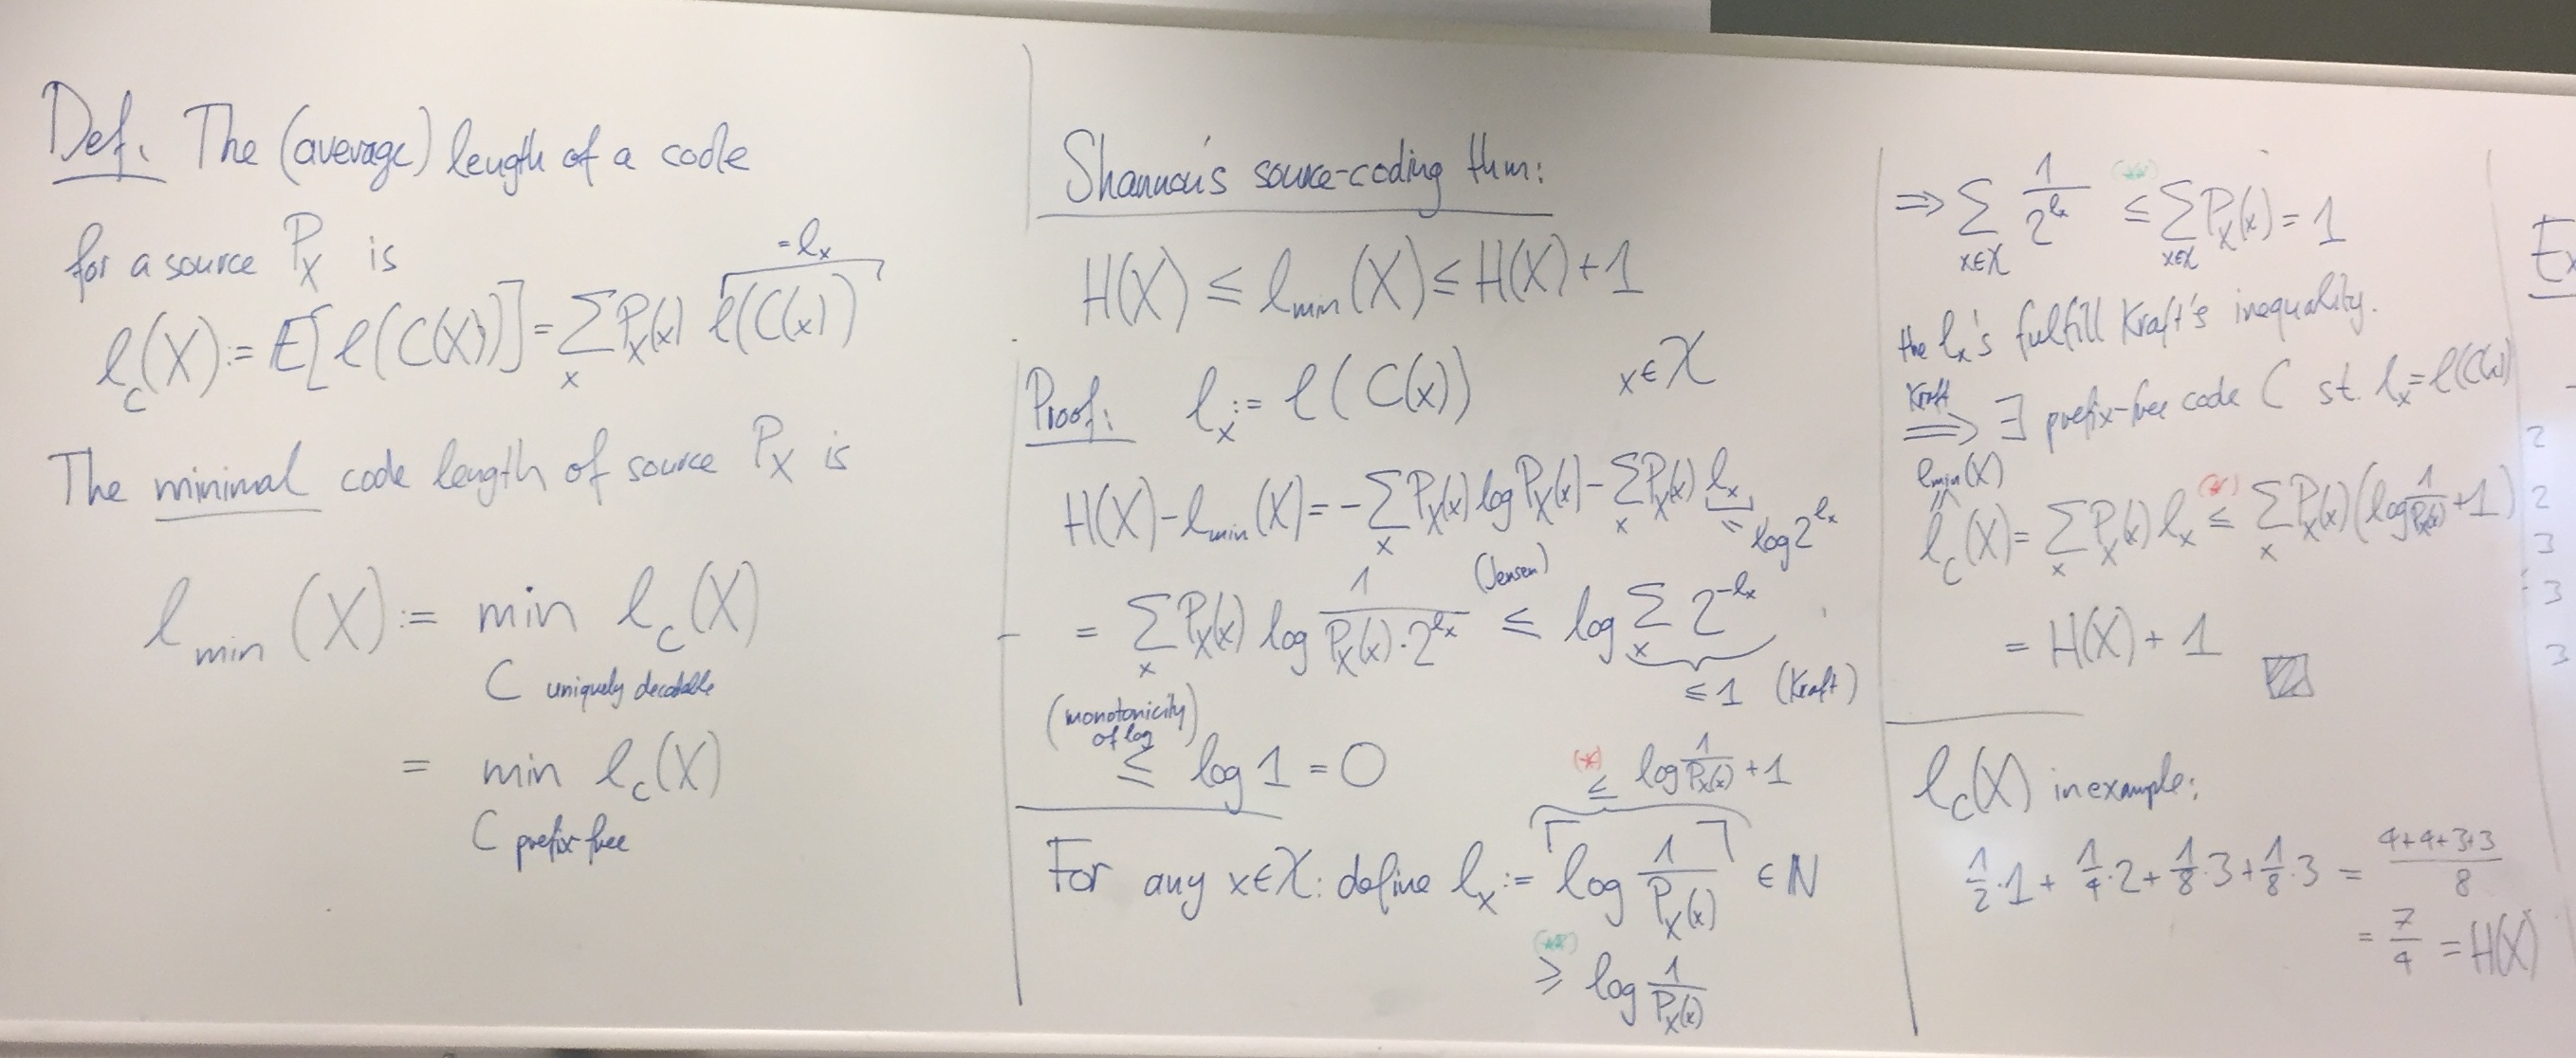 Def. The (average) length of a code
for a source P_X is
= l_x
l_C(X) := E[l(C(X))] = Σ_x P_X(x) l(C(x))
The minimal code length of source P_X is
l_min (X) := min l_C(X)
C uniquely decodable
= min l_C(X)
C prefix-free
Shannon's source-coding thm:
H(X) ≤ l_min (X) ≤ H(X) + 1
Proof: l_x := l(C(x)) x ∈ 𝒳
H(X) - l_min (X) = - Σ_x P_X(x) log P_X(x) - Σ_x P_X(x) l_x
= log 2^{l_x}
= Σ_x P_X(x) log 1/(P_X(x)·2^{l_x}) ≤ (Jensen) log Σ_x 2^{-l_x}
≤ 1 (Kraft)
(monotonicity of log)
≤ log 1 = 0
(*) ≤ log 1/P_X(x) + 1
For any x ∈ 𝒳: define l_x := ⌈log 1/P_X(x)⌉ ∈ ℕ
(**) ≥ log 1/P_X(x)
⇒ Σ_{x∈𝒳} 1/2^{l_x} ≤ (**) Σ_{x∈𝒳} P_X(x) = 1
the l_x's fulfill Kraft's inequality.
Kraft
⇒ ∃ prefix-free code C st. l_x = l(C(x))
l_min(X)
≤
l_C(X) = Σ_x P_X(x) l_x ≤ (*) Σ_x P_X(x) (log 1/P_X(x) + 1)
= H(X) + 1
l_C(X) in example:
1/2·1 + 1/4·2 + 1/8·3 + 1/8·3 = (4+4+3+3)/8
= 7/4 = H(X)
Ex
2
2
3
3
3